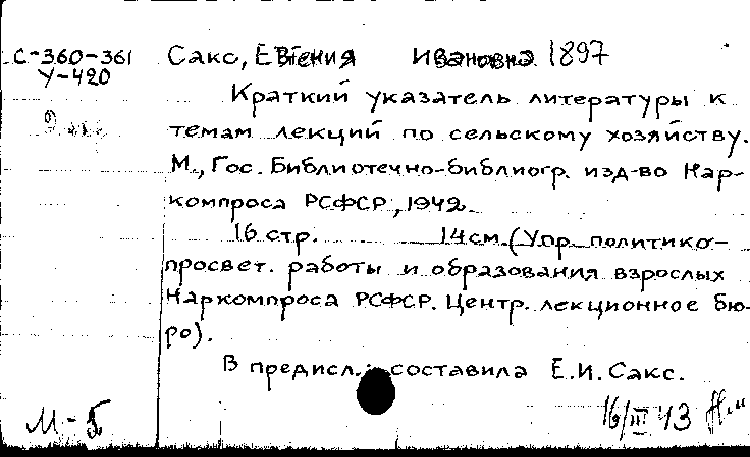 С-360-361 Сакс, Евгения Ивановна 1897
У-420
Краткий указатель литературы к
темам лекций по сельскому хозяйству.
М., Гос. Библиотечно-библиогр. изд-во Нар-
компроса РСФСР, 1942.
16 стр. 14 см. (Упр. политико-
просвет. работы и образования взрослых
Наркомпроса РСФСР. Центр. лекционное бю-
ро).
В предисл.: составила Е.И. Сакс.
М-Б 16/III 43